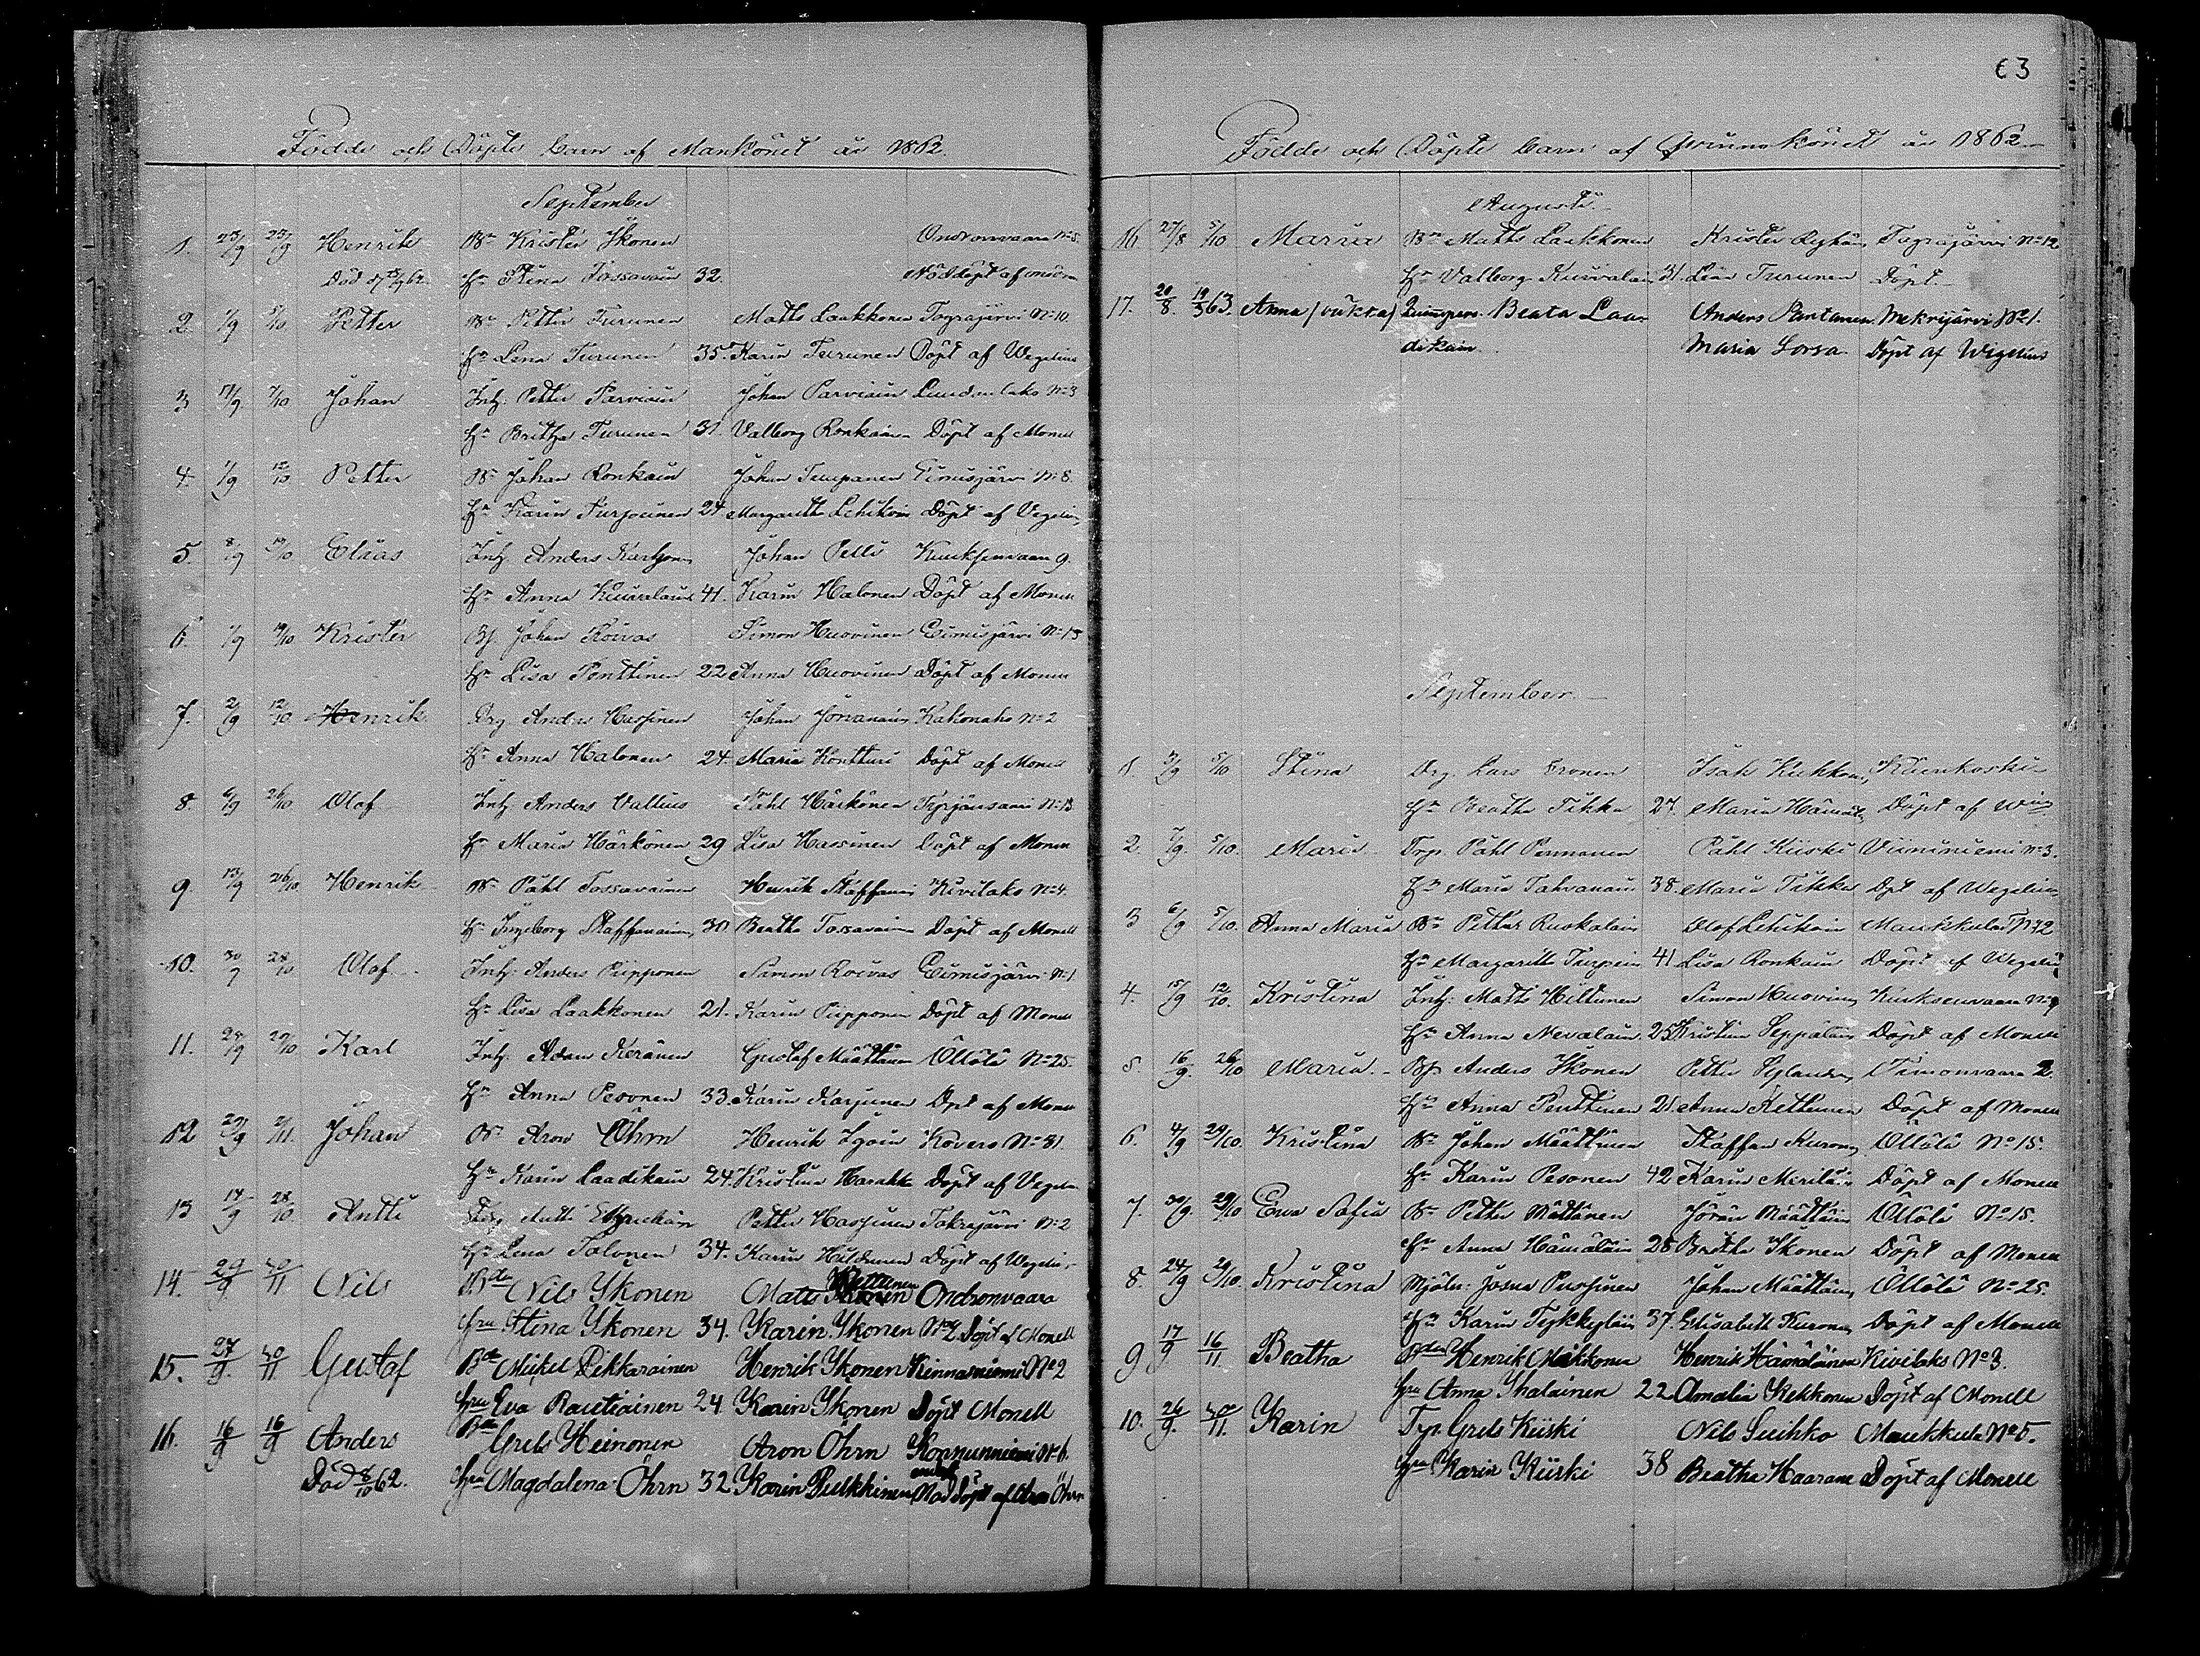 63
Födde och Döpte barn af Mankönet år 1862.
September
1. 25/9 25/9 Henrik Bn Krister Ikonen Ondronvaara No 5.
Död d 62. Hu Stina Tossavain 32. Nöddöpt af
2. 1/9 5/10 Petter Bn Petter Turunen Matts Laakkonen Tograjärvi No 10.
Hu Lena Turunen 35. Karin Turunen Döpt af Wegelius
3 7/10 Johan Inh: Petter Parviain Johan Parviain No 3
Hu Britha Turunen 31. Valborg Ronkain Döpt af Monell
4. 1/9 12/10 Petter Bn Johan Ronkain Johan Timpanen Eimisjärvi No 8.
Hu Karin Surjounen 24 Margaretha Lehikoin Döpt af Vegelius
5. 8/9 19/10 Elias Inh Anders Karhonen Johan Pelli Kuuksenvaara 9.
Hu Anna Kuivalain 41. Karin Halonen Döpt af Monell
6. 1/9 19/10 Krister Bf. Johan Roivas Simon Huovinen Eimisjärvi No 13
Hu Lisa Penttinen 22 Anna Huovinen Döpt af Monell
7. 2/9 12/10 Henrik Drg Anders Hassinen Johan Jorvanain Kakonaho No 2
Hu Anna Halonen 24. Maria Kontturi Döpt af Monell
8. 6/9 26/10 Olof Inh Anders Vallius Påhl Härkönen No 13
Hu Maria Härkönen 29 Lisa Hassinen Döpt af Monell
9 13/9 26/10 Henrik Bn Påhl Tossavainen Henrik Staffanain Kivilaks No 4.
Hu Ingeborg Staffanain, 30. Beatha Tossavain Döpt af Monell
10. 30/9 28/10 Olof Inh: Anders Piipponen Simon Roivas Eimisjärvi No 1
Hu Lisa Laakkonen 21. Karin Piipponen Döpt af Monell
11. 24/9 29/10 Karl Inh: Adam Keränen Gustaf Määttänen Öllölä No 25.
Hu Anna Pesonen 33. Karin Karjunen Dpt af Monell
12 29/9 2/11. Johan Bn Aron Öhrn Henrik Igoin Kovero No 31.
Hu Karin Laadikain 24. Kristina Harakka Döpt af Vegelius
13 14/9 28/10 Antti Antti Petter Hassinen Tokrajärvi No 2
Hu Lena Tolonen 34. Karin Hiltunen Döpt af Wegelius
14. 29/9 30/11. Nils Bde Nils Ikonen Matts Ondronvaara
Hru Stina Ikonen 34. Karin Ikonen No 2 Döpt af Monell
15. 27/9. 30/11. Gustaf Bde Mikel Pekkarainen Henrik Ikonen Kinnasniemi No 2
Hru Eva Rautiainen 24 Karin Ikonen Döpt Monell
16. 16/9 16/9 Anders Bde Grels Heinonen Aron Öhrn Konnunniemi No 6.
Död 8/10 62. Hru Magdalena Öhrn 32 Karin Pulkkinen Nöddöpt af Aron Öhrn
Födde och Döpte barn af Qvinnokönet år 1862.
Augusti.
16 27/8 5/10 Maria Bn Matts Laakkonen Krister Tograjärvi No 12
Hu Valborg Kuivalain 31. Lisa Turunen Döpt.
17. 20/8. 19/3 63. Anna (oäkta) Qvinspers. Beata Laa- Anders Pantanen Mekrijärvi No 1.
dikain. Maria Sorsa Döpt af Wigelius
September
1. 3/9 5/10 Stina Drg. Lars Isak Kukkon. Kuenkoski
Hu Beatha Tikka 27. Maria Hämäl. Döpt af
2. 7/9. 5/10. Maria Trp. Påhl Pennanen Påhl Kiiski Viininiemi No 3.
Hu Maria Tahvanain 38. Maria Tikka Dpt af Wegelius
3 6/9 5/10. Anna Maria Bn Petter Ruokolain Olof Lehikoin Maukkula No 2
Hu Margarith Turpein 41 Lisa Ronkain Döpt af Wegelius
4. 15/9 12/10. Kristina Inh: Matts Hiltunen Simon Huovinen Kuuksenvaara No 9
Hu Anna Nevalain. 25 Kristina Seppäläin Döpt af Monell
5. 16/9. 26/10 Maria. Bf. Anders Ikonen Petter Sylander Timonvaara 2.
Hu Anna Penttinen 21. Anna Kettunen Döpt af Monell
6. 4/9 29/10. Kristina Bn Johan Määttänen Staffan Kuronen Öllölä No 15.
Hu Karin Pesonen 42 Karin Meriläin Döpt af Monell
7. 30/9. 29/10 Eva Sofia Bn Petter Mättänen Jöran Määttäin Öllölä No 15.
Hu Anna Hämäläin 28 Britha Ikonen Döpt af Monell
8. 24/9 29/10. Kristina Mjöln: Josua Pursjinen Johan Määttäin Öllölä No 25.
Hu Karin Tykkyläin 37. Elisabeth Kuronen Döpt af Monell
9 17/9 16/11. Beatha Bden Henrik Mikkonen Henrik Hämäläinen Kivilaks No 3.
Hru Anna Ihalainen 22 Amalia Kekkonen Döpt af Monell
10. 26/9. 30/11. Karin Trp. Grels Kiiski Nils Suihko Maukkula No 5.
Hru Karin Kiiski 38 Beatha Haarane Döpt af Monell